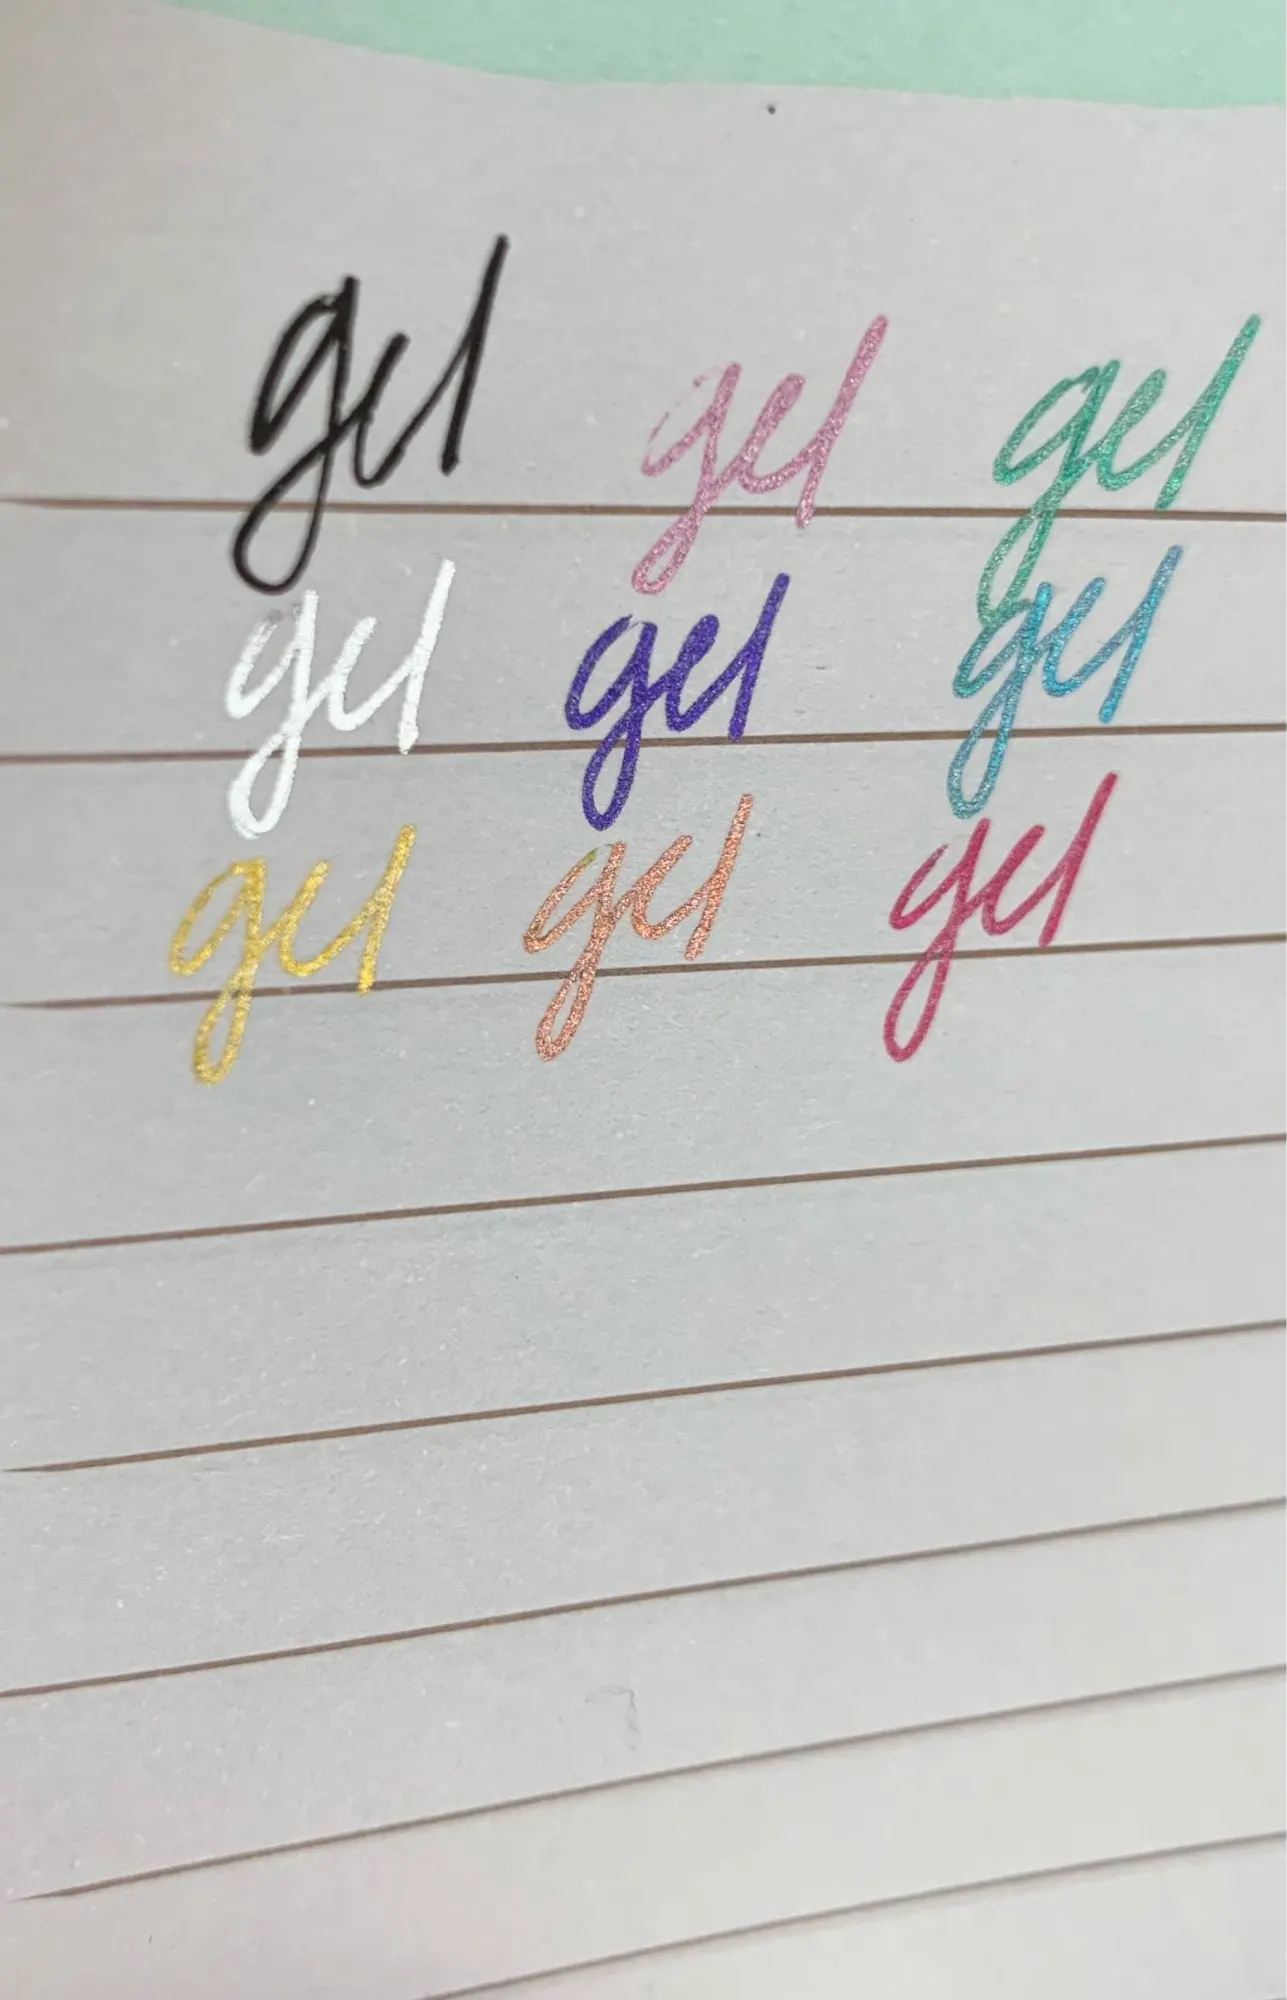 gel gel gel
gel gel gel
gel gel gel